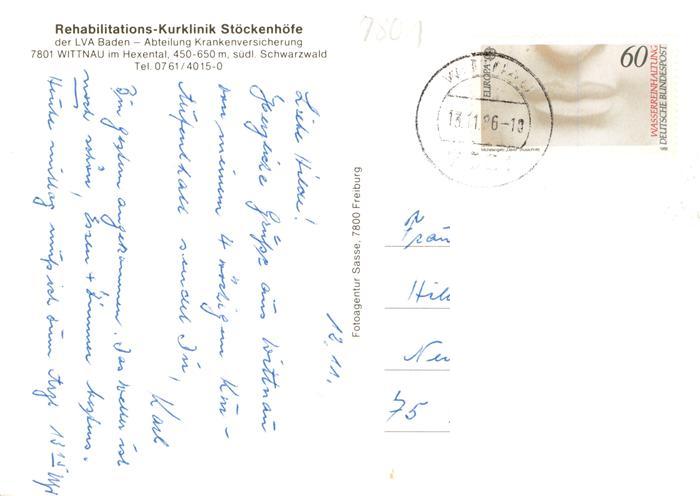 Rehabilitations-Kurklinik Stöckenhöfe
der LVA Baden – Abteilung Krankenversicherung
7801 WITTNAU im Hexental, 450-650 m, südl. Schwarzwald
Tel. 0761/4015-0
12.11.
Liebe Hilde!
Herzliche Grüße aus Wittnau
von meinem 4 wöchigen Kur-
Aufenthalt sendet Dir, Karl
Bin gestern angekommen. Das Wetter ist
noch schön, Essen + Zimmer bestens.
Heute mittag muß ich zum Arzt 13 15 Uhr
Fotoagentur Sasse, 7800 Freiburg
7801
13.11.86-18
EUROPA
60
WASSERREINHALTUNG
DEUTSCHE BUNDESPOST
Frau
Hil
Neu
75